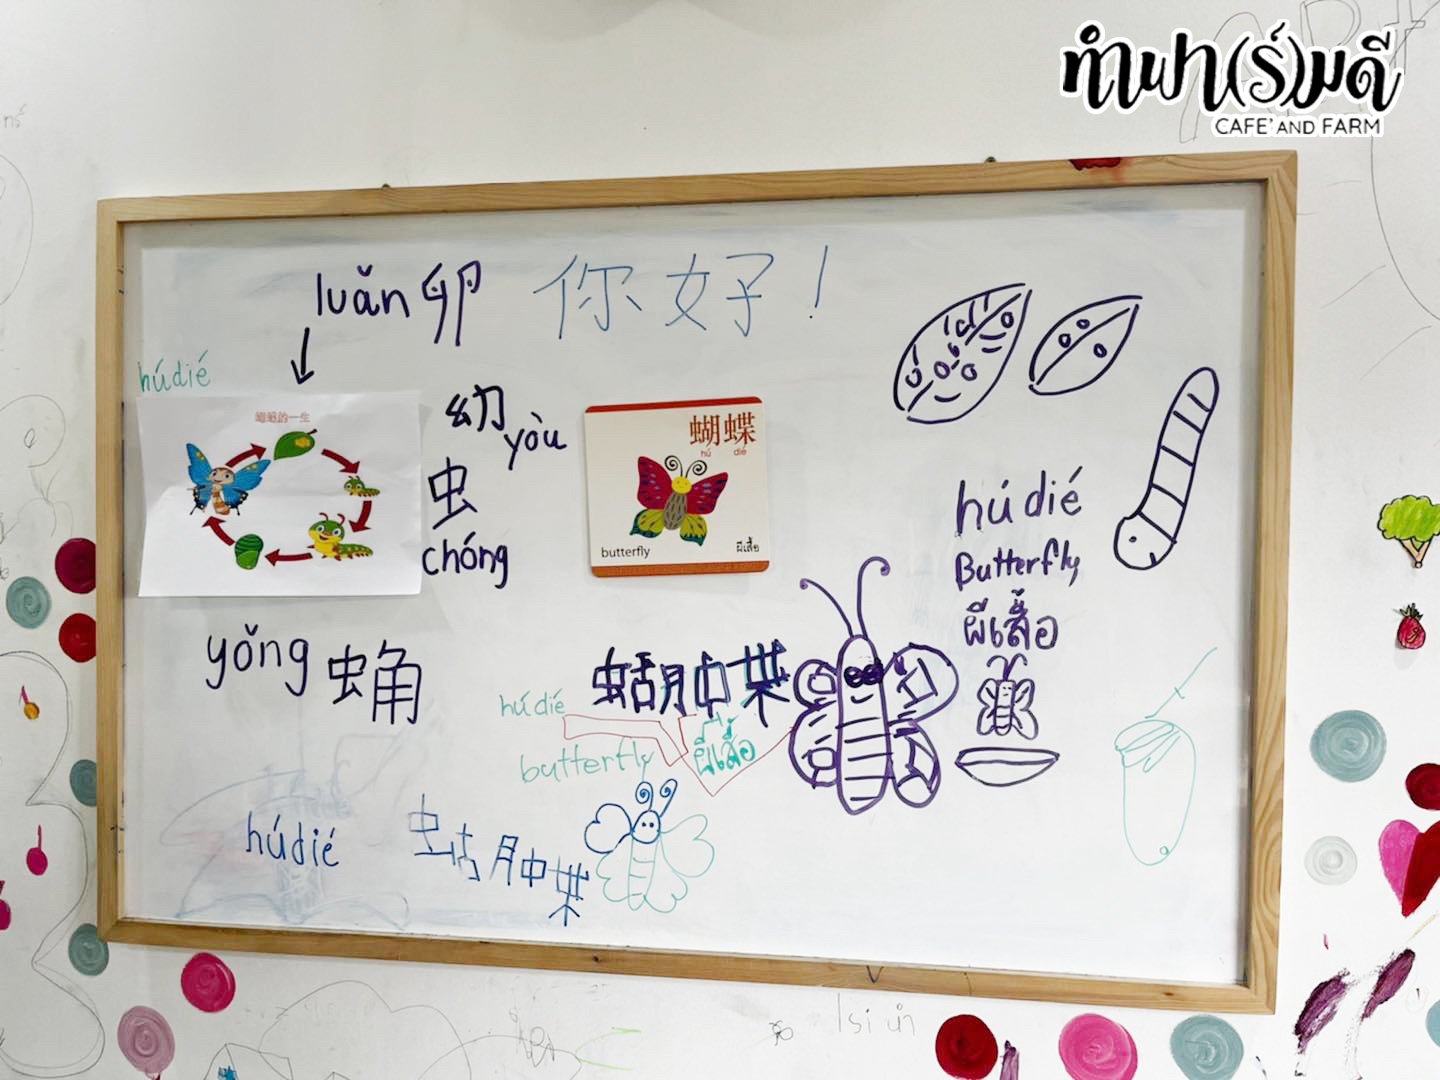 ทำฟา(ร์)มดี
CAFE' AND FARM
luǎn 卵 你好!
húdié
蝴蝶的一生
幼 yòu
虫
chóng
蝴蝶
hú dié
butterfly ผีเสื้อ
húdié
Butterfly
ผีเสื้อ
yǒng 蛹
蝴蝶
húdié
butterfly ผีเสื้อ
húdié 蝴蝶